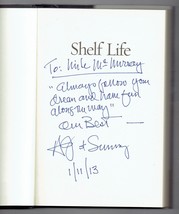 Shelf Life
To: Mike McMurray
"Always follow your
dream and have fun
along the way"
Our Best —
& Sunny
1/11/13